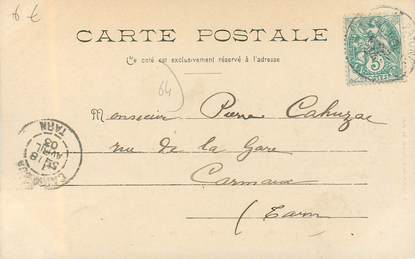 6 €
CARTE POSTALE
Ce coté est exclusivement réservé à l'adresse
64
Monsieur Pierre Cahuzac
rue de la Gare
Carmaux
(Tarn
5
18
AVRIL
03
TARN